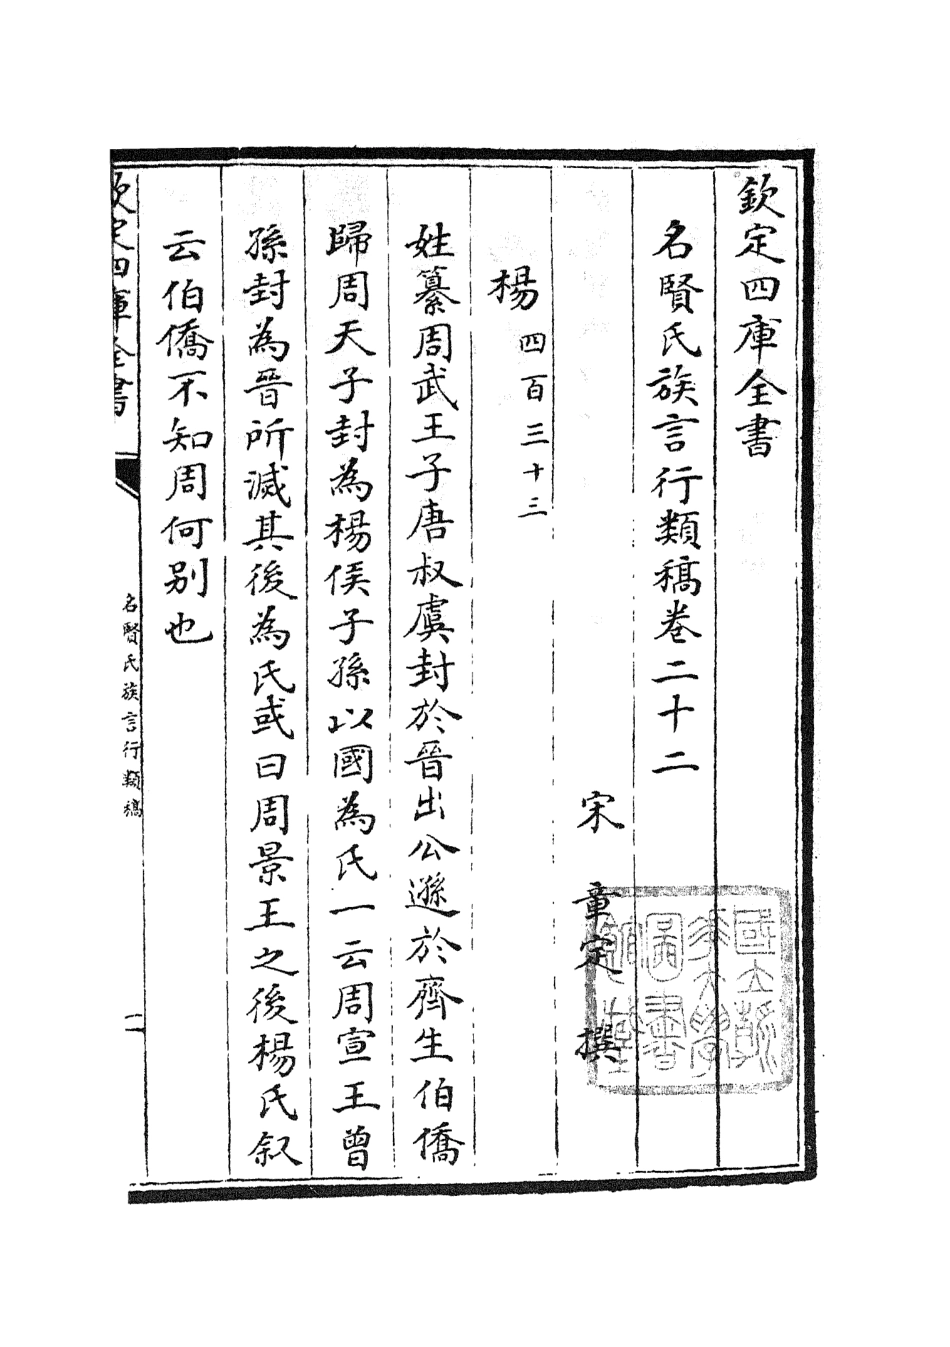 欽定四庫全書
名賢氏族言行類稿卷二十二
宋 章定 撰
楊 四百三十三
姓纂周武王子唐叔虞封於晉出公遜於齊生伯僑
歸周天子封為楊侯子孫以國為氏一云周宣王曾
孫封為晉所滅其後為氏或曰周景王之後楊氏叙
云伯僑不知周何别也
欽定四庫全書
名賢氏族言行類稿
一